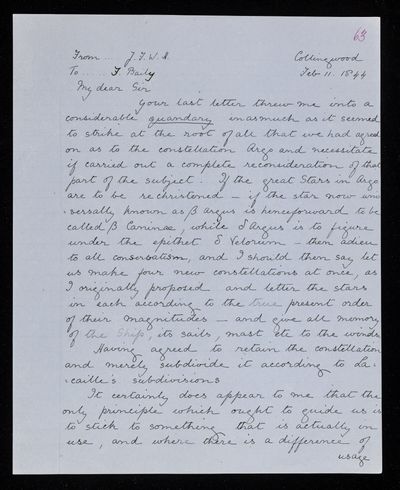 63
From ... J.F.W.H. Collingwood
To ..... F. Baily Feb 11. 1844
My dear Sir
Your last letter threw me into a
considerable quandary inasmuch as it seemed
to strike at the root of all that we had agreed
on as to the constellation Argo and necessitate
if carried out a complete reconsideration of that
part of the subject. If the great Stars in Argo
are to be rechristened — if the star now uni
-versally known as β Argus is henceforward to be
called β Carinæ, while δ Argus is to figure
under the epithet δ Velorum — then adieu
to all conservatism, and I should then say let
us make four new constellations at once, as
I originally proposed and letter the stars
in each according to the true present order
of their magnitudes — and give all memory
of the Ship, its sails, mast etc to the winds
Having agreed to retain the constellation
and merely subdivide it according to La-
-caille's subdivisions
It certainly does appear to me that the
only principle which ought to guide us is
to stick to something that is actually in
use, and where there is a difference of
usage